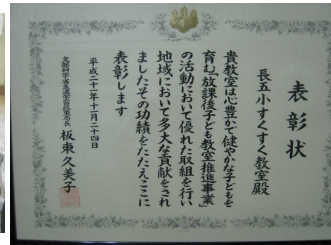 表彰状
長五小すくすく教室殿
貴教室は心豊かで健やかな子どもを
育む「放課後子ども教室推進事業」
の活動において優れた取組を行い
地域において多大な貢献をされ
ましたその功績をたたえここに
表彰します
平成二十一年十一月二十四日
文部科学省生涯学習政策局長 板東久美子